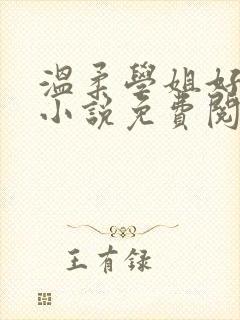 温柔學姐好
小說免費閱
王有録